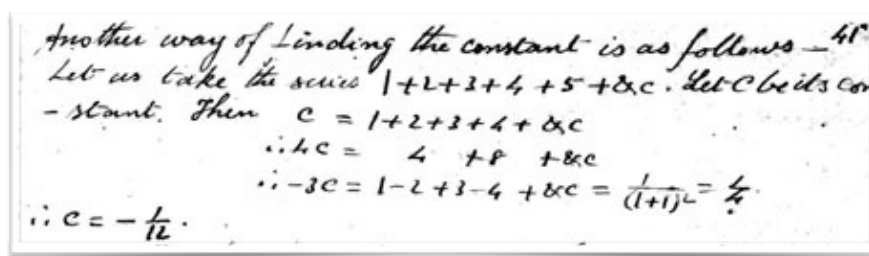 Another way of finding the constant is as follows — 41
Let us take the series 1+2+3+4+5+&c. Let C be its con
-stant. Then c = 1+2+3+4+&c
∴ 4c = 4 +8 +&c
∴ -3c = 1-2+3-4+&c = 1/(1+1)² = 1/4
∴ c = -1/12.